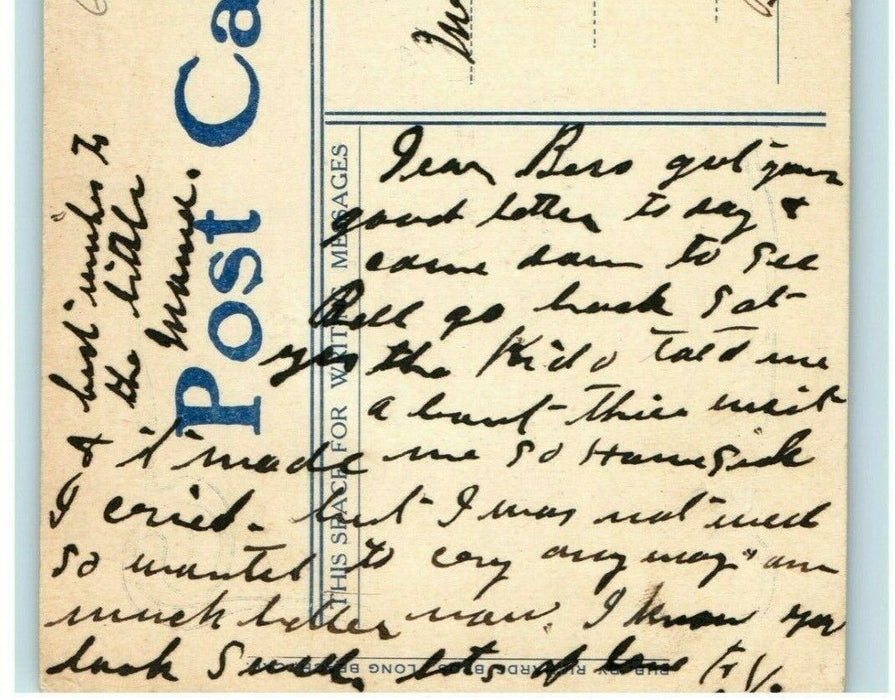 Post Ca
THIS SPACE FOR WRITING MESSAGES
Dear Bess got your
good letter to day &
came down to see
Bell go back Sat-
yes the Kids told me
about thier visit
& it made me so Homesick
I cried. but I was not well
so wanted to cry any way" am
much better now. I know you
look Swell. lots of love to
& best wishes to
the little
Mama.
PUB. BY RICHARDS LONG BEACH